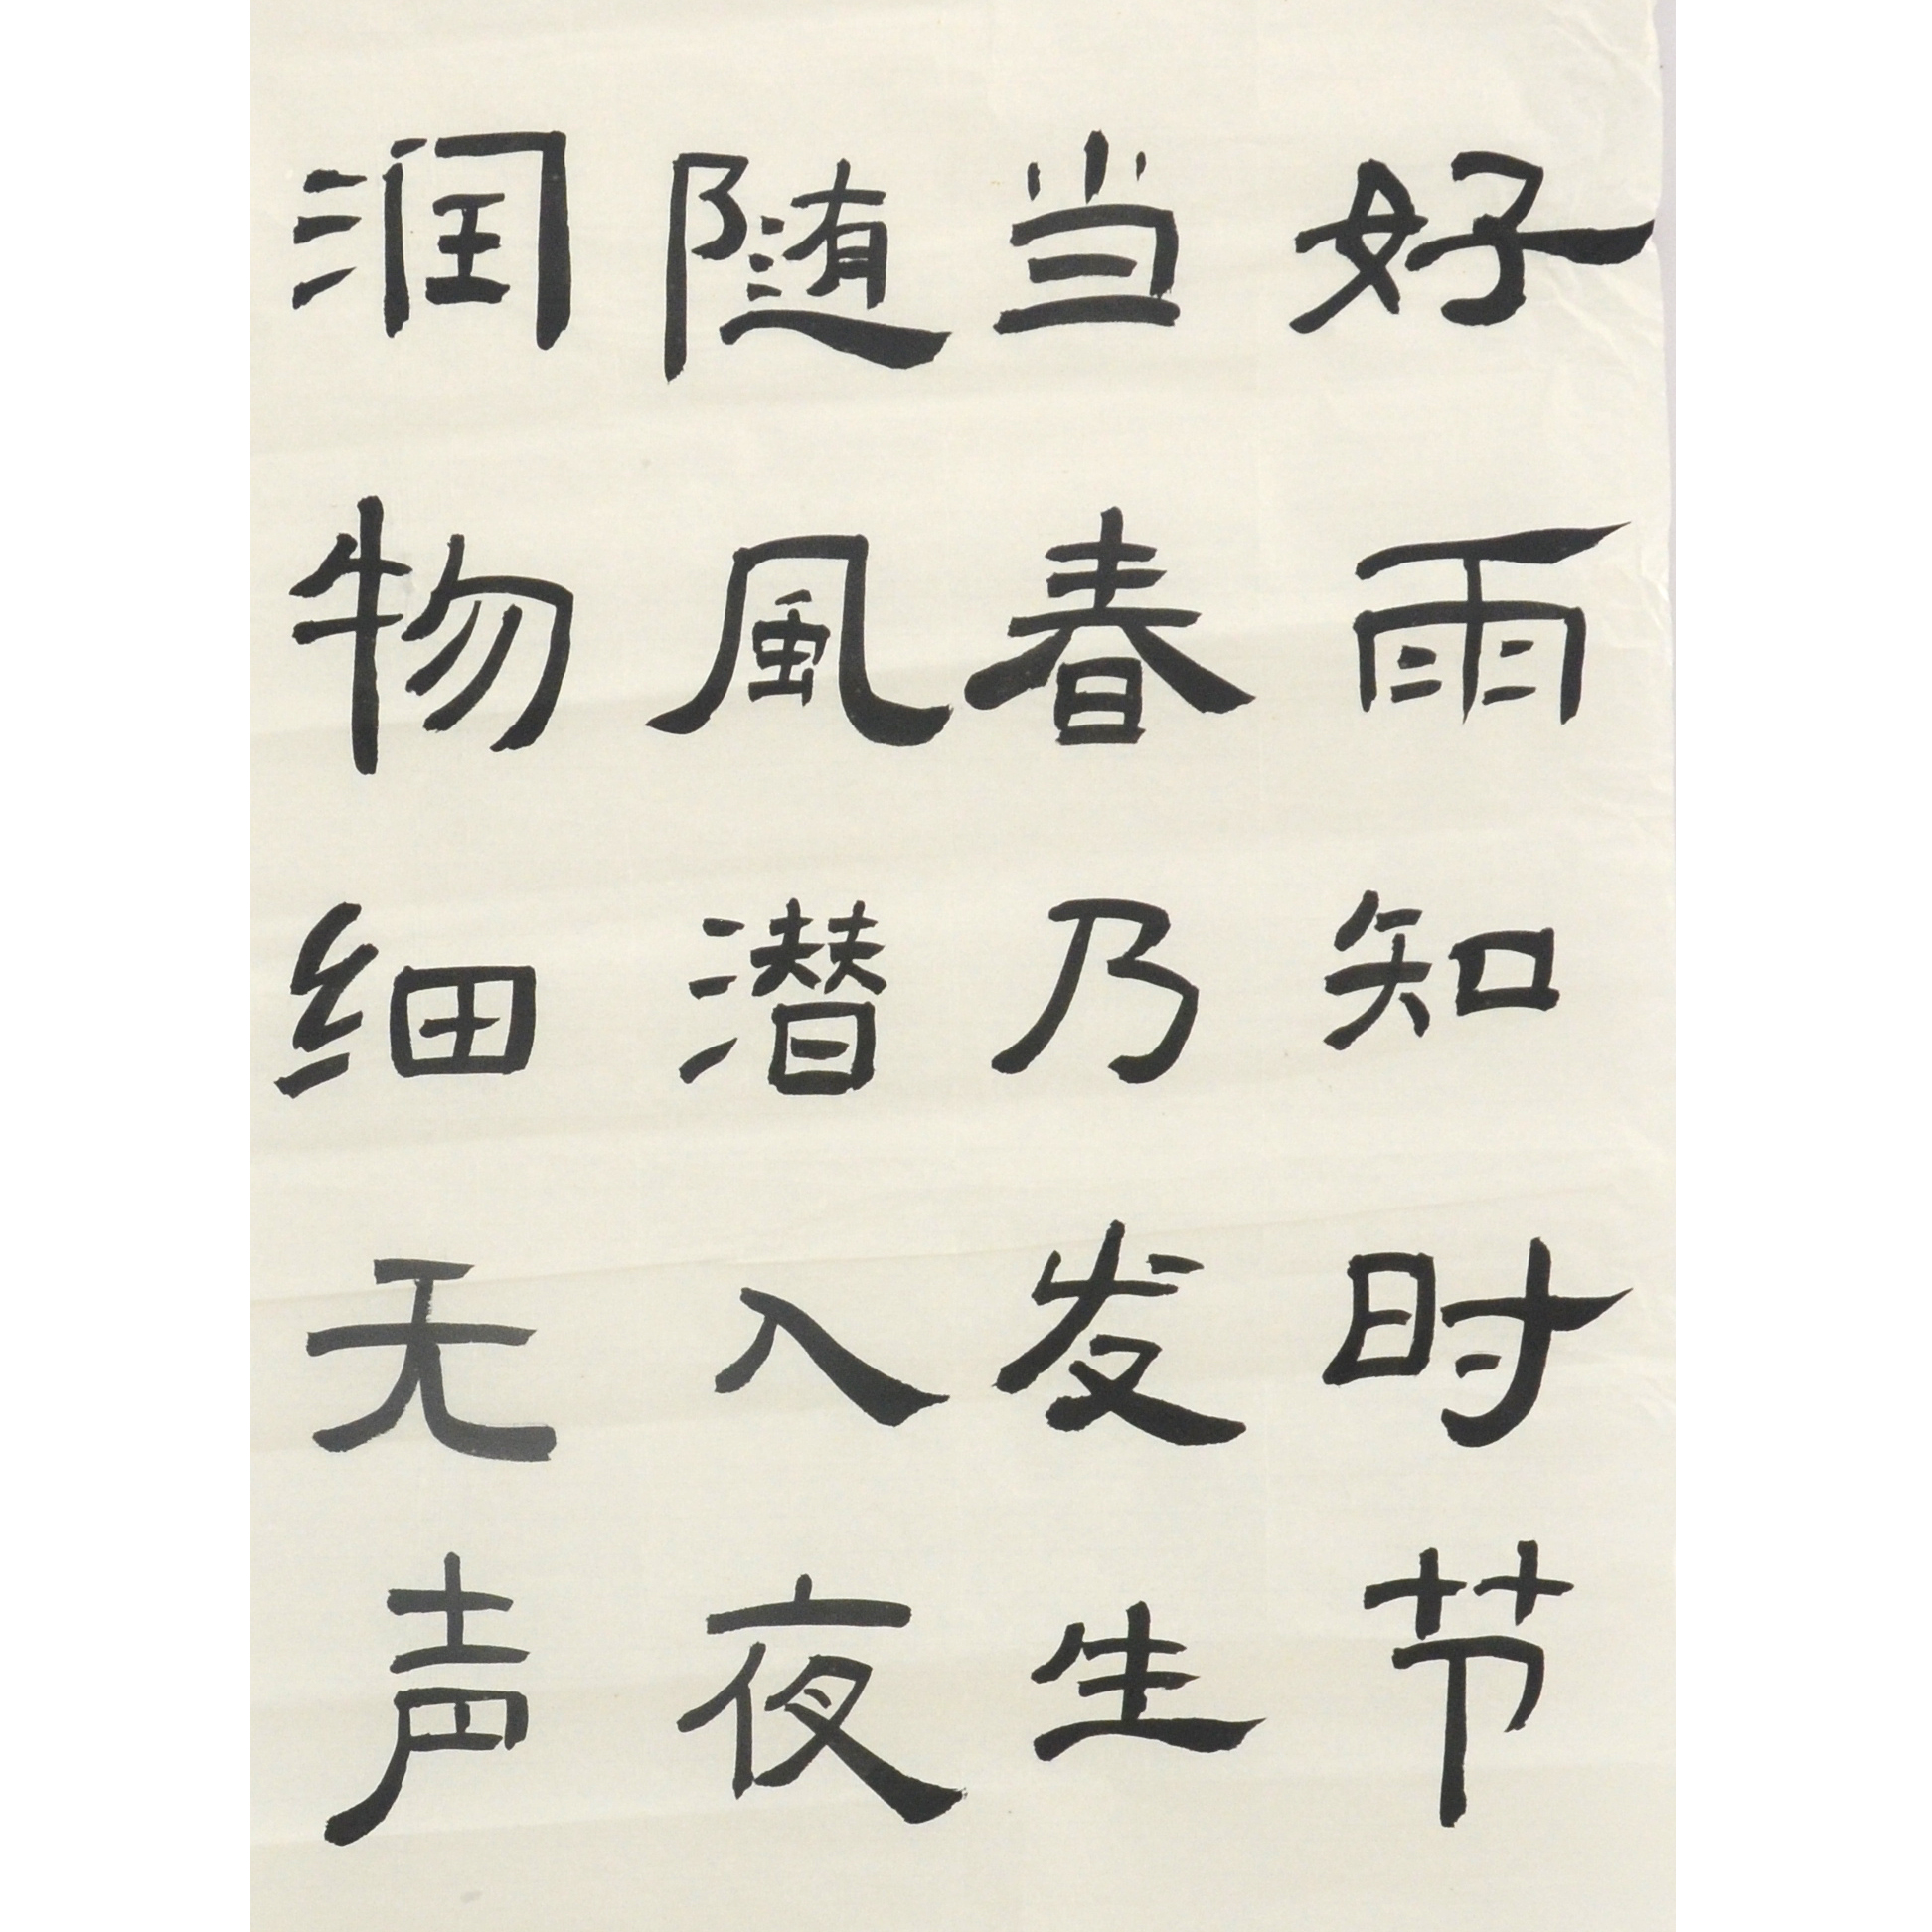 好雨知时节
当春乃发生
随風潜入夜
润物细无声